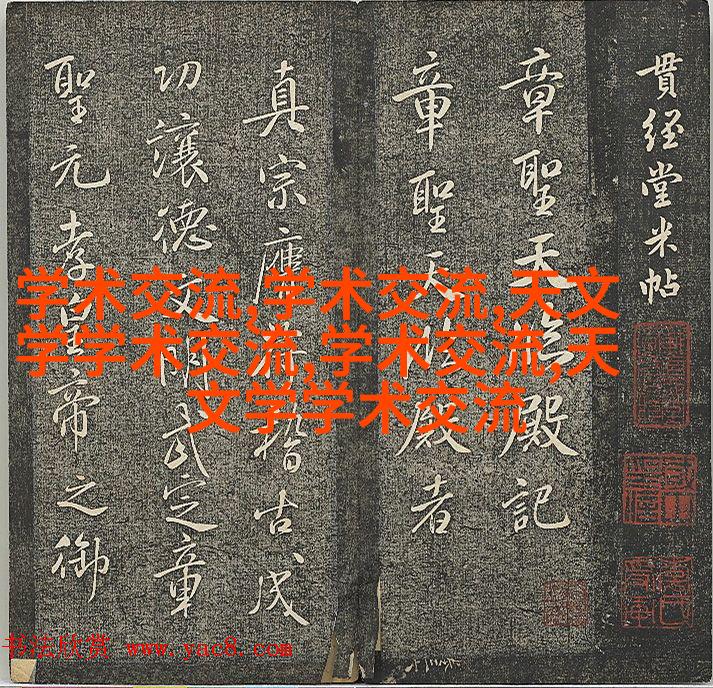 貫經堂米帖
章聖天臨殿記
章聖天臨殿者
真宗膺稽古成
功讓德文明武定章
聖元孝皇帝之御
学术交流,学术交流,天文
学学术交流,学术交流,天
文学学术交流
书法欣赏 www.yac8.com